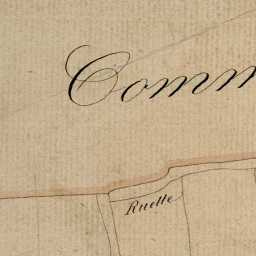 Comm
Ruelle